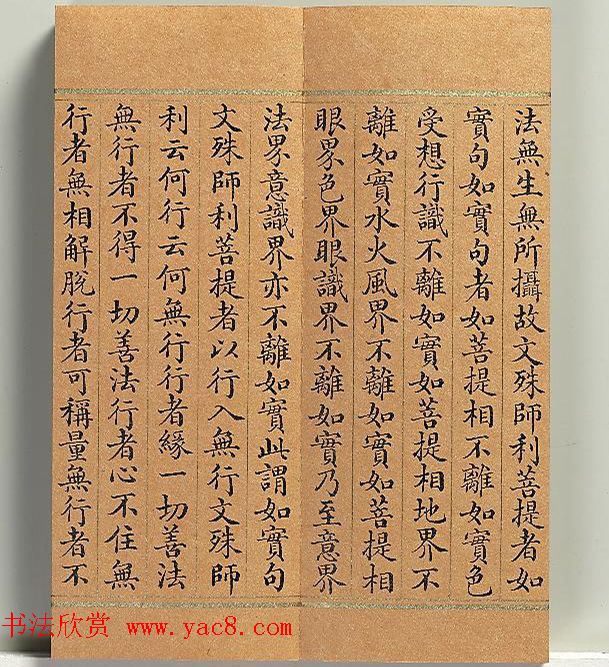 法無生無所攝故文殊師利菩提者如
實句如實句者如菩提相不離如實色
受想行識不離如實如菩提相地界不
離如實水火風界不離如實如菩提相
眼界色界眼識界不離如實乃至意界
法界意識界亦不離如實此謂如實句
文殊師利菩提者以行入無行文殊師
利云何行云何無行行者緣一切善法
無行者不得一切善法行者心不住無
行者無相解脫行者可稱量無行者不
书法欣赏 www.yac8.com